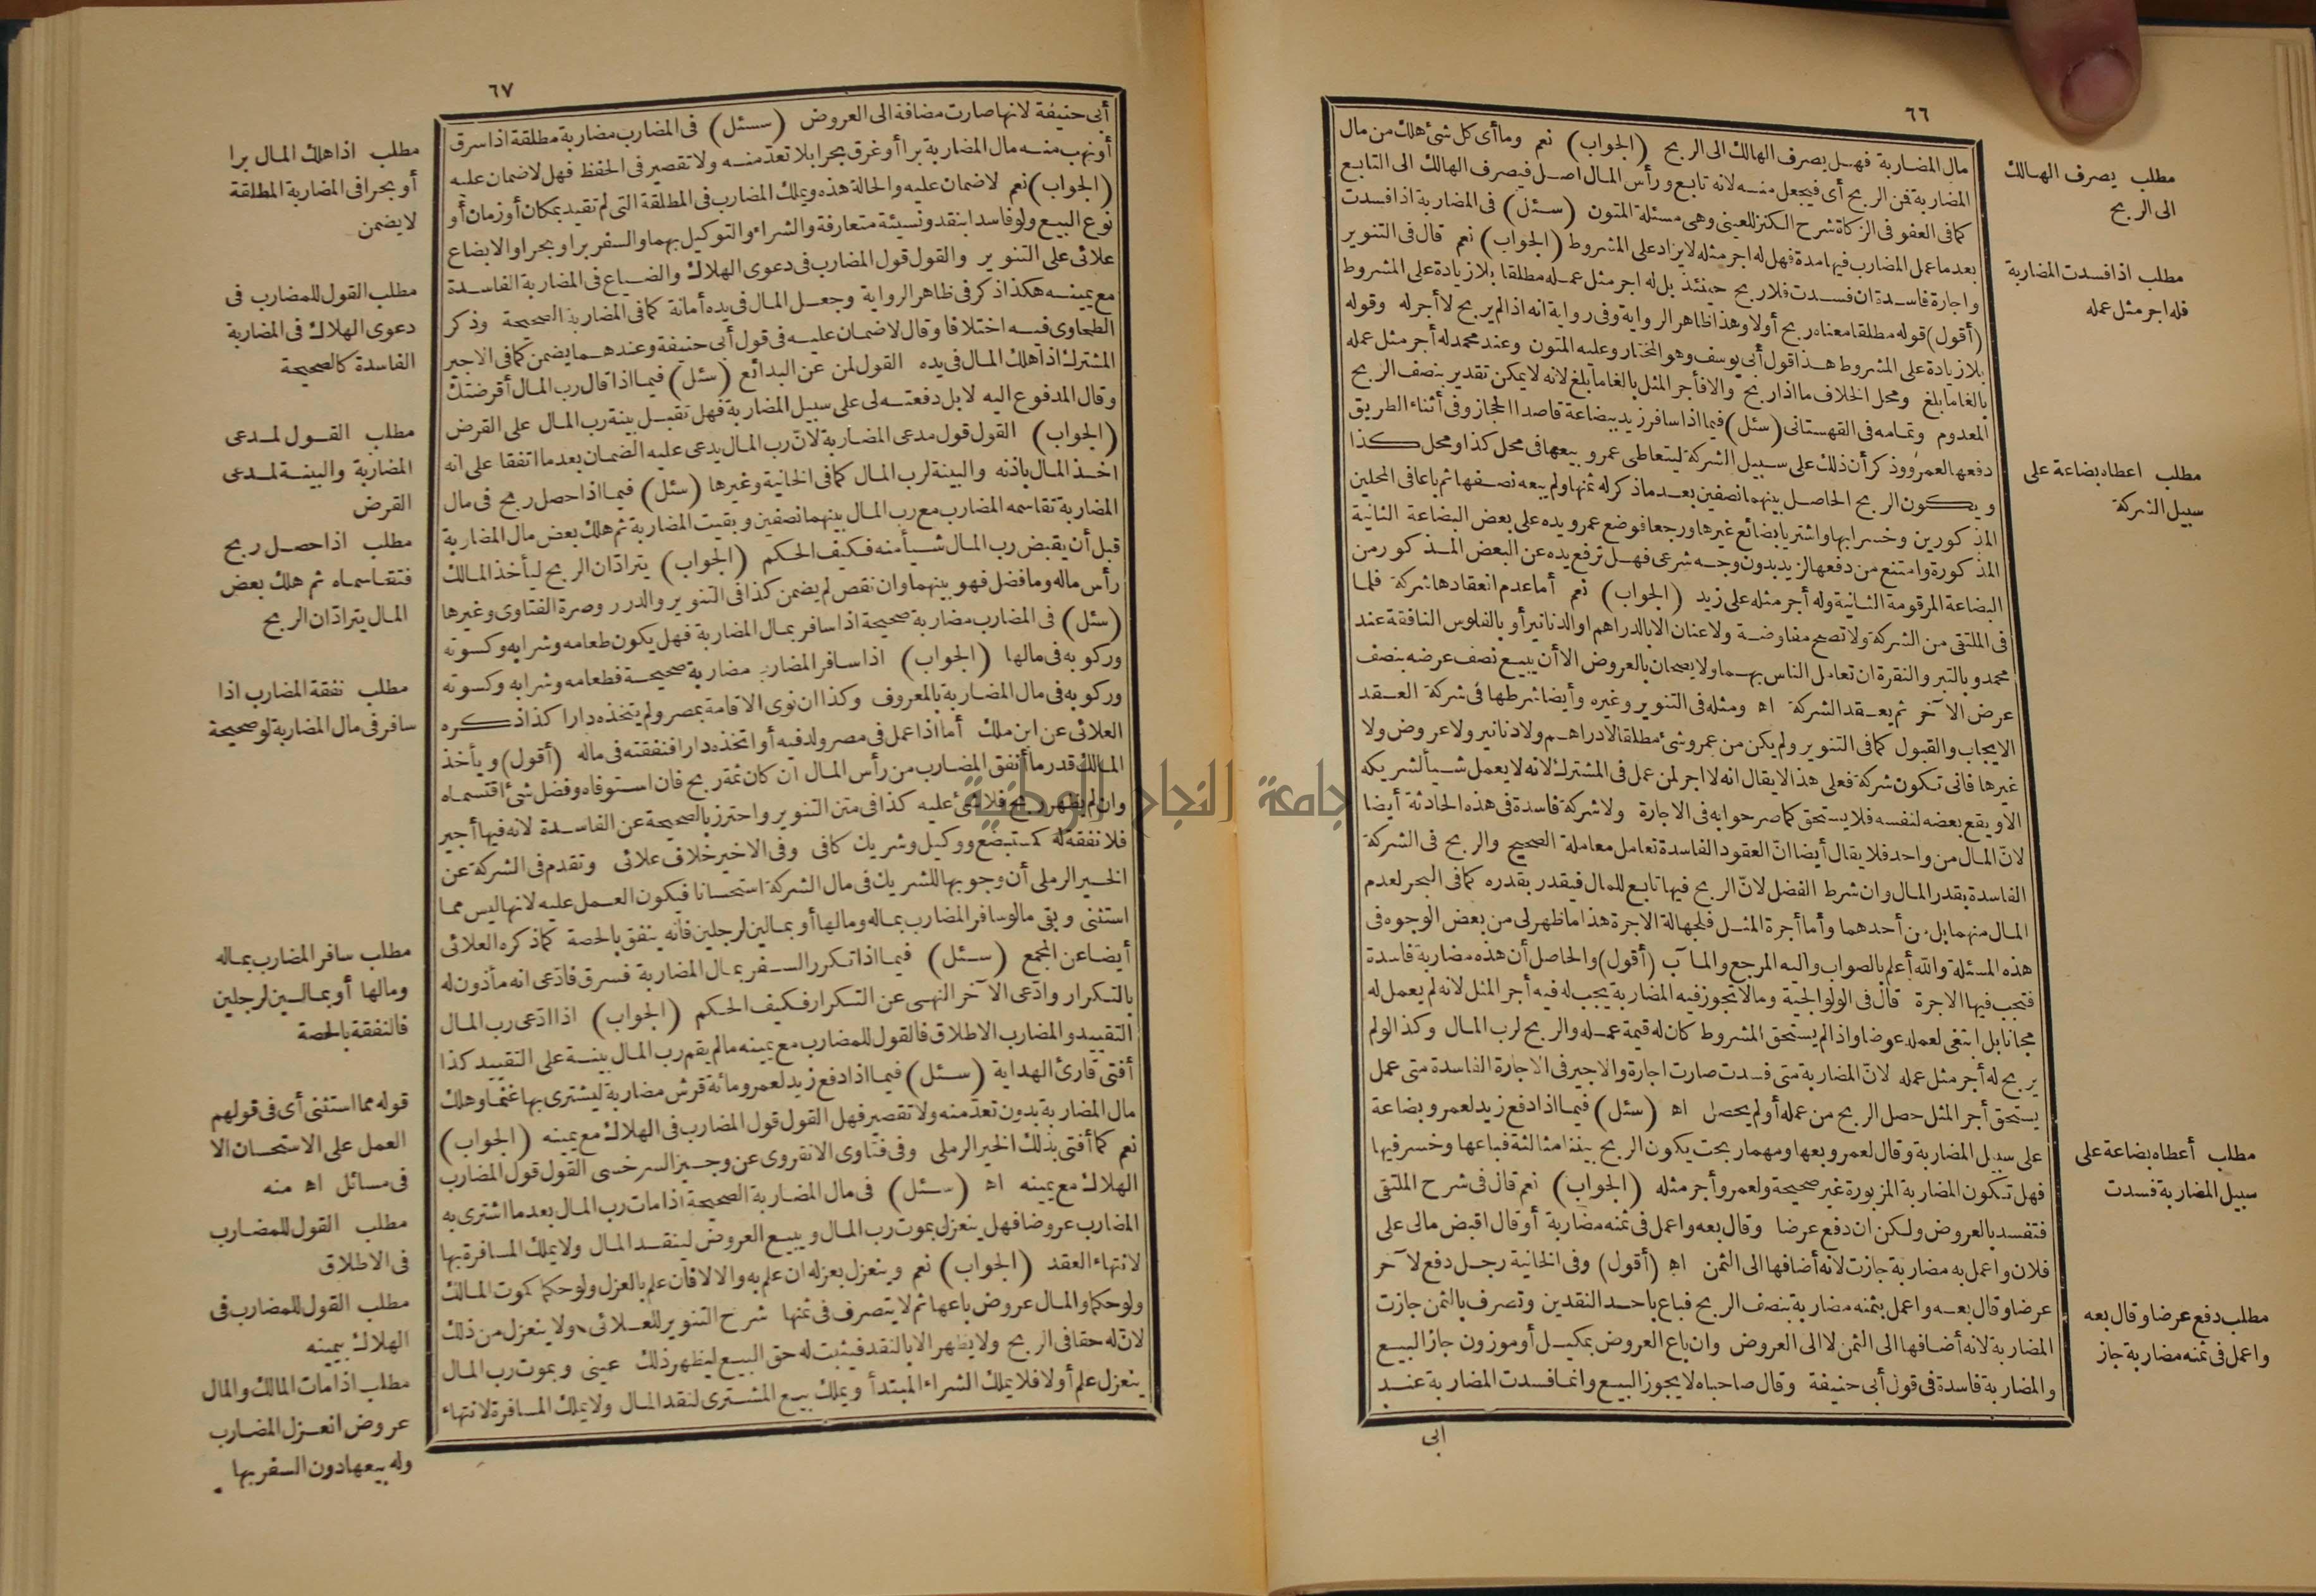 ٦٦
مال المضاربة فهل يصرف الهالك الى الربح (الجواب) نعم وما أى كل شئ هلك من مال
المضاربة فمن الربح أى فيجعل منه لانه تابع ورأس المال اصل فيصرف الهالك الى التابع
كما فى العفو فى الزكاة شرح الكنز للعينى وهى مسئلة المتون (سئل) فى المضاربة اذا فسدت
بعد ما عمل المضارب فيها مدة فهل له اجر مثله لا يزاد على المشروط (الجواب) نعم قال فى التنوير
واجارة فاسدة ان فسدت فلا ربح حينئذ بل له اجر مثل عمله مطلقا بلا زيادة على المشروط
(أقول) قوله مطلقا معناه ربح أولا وهذا ظاهر الرواية وفى رواية انه اذا لم يربح لا أجر له وقوله
بلا زيادة على المشروط هذا قول أبى يوسف وهو المختار وعليه المتون وعند محمد له أجر مثل عمله
بالغا ما بلغ ومحل الخلاف ما اذا ربح والا فأجر المثل بالغا ما بلغ لانه لا يمكن تقدير بنصف الربح
المعدوم وتمامه فى القهستانى (سئل) فيما اذا سافر زيد ببضاعة قاصدا الحجاز وفى أثناء الطريق
دفعها لعمرو وذكر أن ذلك على سبيل الشركة ليتعاطى عمرو بيعها فى محل كذا ومحل كذا
ويكون الربح الحاصل بينهما نصفين بعد ما ذكر له ثمنها ولم يبعه نصفها ثم باعا فى المحلين
المذكورين وخسرا بها واشتريا بضائع غيرها ورجعا فوضع عمرو يده على بعض البضاعة الثانية
المذكورة وامتنع من دفعها لزيد بدون وجه شرعى فهل ترفع يده عن البعض المذكور من
البضاعة المرقومة الثانية وله أجر مثله على زيد (الجواب) نعم أما عدم انعقادها شركة فلما
فى الملتقى من الشركة ولا تصح مفاوضة ولا عنان الا بالدراهم او الدنانير أو بالفلوس النافقة عند
محمد وبالتبر والنقرة ان تعامل الناس بهما ولا يصحان بالعروض الا أن يبيع نصف عرضه بنصف
عرض الآخر ثم يعقد الشركة اه ومثله فى التنوير وغيره وأيضا شرطها فى شركة العقد
الايجاب والقبول كما فى التنوير ولم يكن من عمرو شئ مطلقا لا دراهم ولا دنانير ولا عروض ولا
غيرها فانى تكون شركة فعلى هذا لا يقال انه لا اجر لمن عمل فى المشترك لانه لا يعمل شيأ لشريكه
الا ويقع بعضه لنفسه فلا يستحق كما صرحوا به فى الاجارة ولا شركة فاسدة فى هذه الحادثة أيضا
لان المال من واحد فلا يقال أيضا انّ العقود الفاسدة تعامل معاملة الصحيح والربح فى الشركة
الفاسدة بقدر المال وان شرط الفضل لانّ الربح فيها تابع للمال فيقدر بقدره كما فى البحر لعدم
المال منهما بل من أحدهما وأما أجرة المثل فلجهالة الاجرة هذا ما ظهر لى من بعض الوجوه فى
هذه المسئلة والله أعلم بالصواب واليه المرجع والمآب (أقول) والحاصل أن هذه مضاربة فاسدة
فتجب فيها الاجرة قال فى الولوالجية وما لا تجوز فيه المضاربة يجب له فيه أجر المثل لانه لم يعمل له
مجانا بل ابتغى لعمله عوضا واذا لم يستحق المشروط كان له قيمة عمله والربح لرب المال وكذا لو لم
يربح له أجر مثل عمله لانّ المضاربة متى فسدت صارت اجارة والاجير فى الاجارة الفاسدة متى عمل
يستحق أجر المثل حصل الربح من عمله أو لم يحصل اه (سئل) فيما اذا دفع زيد لعمرو بضاعة
على سبيل المضاربة وقال لعمرو بعها ومهما ربحت يكون الربح بيننا مثالثة فباعها وخسر فيها
فهل تكون المضاربة المزبورة غير صحيحة ولعمرو أجر مثله (الجواب) نعم قال فى شرح الملتقى
فتفسد بالعروض ولكن ان دفع عرضا وقال بعه واعمل فى ثمنه مضاربة أو قال اقبض مالى على
فلان واعمل به مضاربة جازت لانه أضافها الى الثمن اه (أقول) وفى الخانية رجل دفع لآخر
عرضا وقال بعه واعمل بثمنه مضاربة بنصف الربح فباع باحد النقدين وتصرف بالثمن جازت
المضاربة لانه أضافها الى الثمن لا الى العروض وان باع العروض بمكيل أو موزون جاز البيع
والمضاربة فاسدة فى قول أبى حنيفة وقال صاحباه لا يجوز البيع وانما فسدت المضاربة عند
ابى
مطلب يصرف الهالك
الى الربح
مطلب اذا فسدت المضاربة
فله اجر مثل عمله
مطلب اعطاه بضاعة على
سبيل الشركة
مطلب أعطاه بضاعة على
سبيل المضاربة فسدت
مطلب دفع عرضا وقال بعه
واعمل فى ثمنه مضاربة جاز
٦٧
أبى حنيفة لانها صارت مضافة الى العروض (سئل) فى المضارب مضاربة مطلقة اذا سرق
أو نهب منه مال المضاربة برا أو غرق بحرا بلا تعدّ منه ولا تقصير فى الحفظ فهل لا ضمان عليه
(الجواب) نعم لا ضمان عليه والحالة هذه ويملك المضارب فى المطلقة التى لم تقيد بمكان أو زمان أو
نوع البيع ولو فاسدا بنقد ونسيئة متعارفة والشراء والتوكيل بهما والسفر برا وبحرا والابضاع
علائى على التنوير والقول قول المضارب فى دعوى الهلاك والضياع فى المضاربة الفاسدة
مع يمينه هكذا ذكر فى ظاهر الرواية وجعل المال فى يده أمانة كما فى المضاربة الصحيحة وذكر
الطحاوى فيه اختلافا وقال لا ضمان عليه فى قول أبى حنيفة وعندهما يضمن كما فى الاجير
المشترك اذا هلك المال فى يده القول لمن عن البدائع (سئل) فيما اذا قال رب المال أقرضتك
وقال المدفوع اليه لا بل دفعته لى على سبيل المضاربة فهل تقبل بينة رب المال على القرض
(الجواب) القول قول مدعى المضاربة لانّ رب المال يدعى عليه الضمان بعد ما اتفقا على انه
اخذ المال باذنه والبينة لرب المال كما فى الخانية وغيرها (سئل) فيما اذا حصل ربح فى مال
المضاربة تقاسمه المضارب مع رب المال بينهما نصفين وبقيت المضاربة ثم هلك بعض مال المضاربة
قبل أن يقبض رب المال شيأ منه فكيف الحكم (الجواب) يترادّان الربح ليأخذ المالك
رأس ماله وما فضل فهو بينهما وان نقص لم يضمن كذا فى التنوير والدرر وصرة الفتاوى وغيرها
(سئل) فى المضارب مضاربة صحيحة اذا سافر بمال المضاربة فهل يكون طعامه وشرابه وكسوته
وركوبه فى مالها (الجواب) اذا سافر المضارب مضاربة صحيحة فطعامه وشرابه وكسوته
وركوبه فى مال المضاربة بالمعروف وكذا ان نوى الاقامة بمصر ولم يتخذه دارا كذا ذكره
العلائى عن ابن ملك أما اذا عمل فى مصر ولد فيه أو اتخذه دارا فنفقته فى ماله (أقول) ويأخذ
المالك قدر ما أنفق المضارب من رأس المال ان كان ثمة ربح فان استوفاه وفضل شئ اقتسماه
وان لم يظهر ربح فلا شئ عليه كذا فى متن التنوير واحترز بالصحيحة عن الفاسدة لانه فيها أجير
فلا نفقة له كمستبضع ووكيل وشريك كافى وفى الاخير خلاف علائى وتقدم فى الشركة عن
الخير الرملى أن وجوبها للشريك فى مال الشركة استحسانا فيكون العمل عليه لانها ليس مما
استثنى وبقى ما لو سافر المضارب بماله ومالها أو بمالين لرجلين فانه ينفق بالحصة كما ذكره العلائى
أيضا عن المجمع (سئل) فيما اذا تكرر السفر بمال المضاربة فسرق فادّعى انه مأذون له
بالتكرار وادّعى الآخر النهى عن التكرار فكيف الحكم (الجواب) اذا ادّعى رب المال
التقييد والمضارب الاطلاق فالقول للمضارب مع يمينه ما لم يقم رب المال بينة على التقييد كذا
أفتى قارئ الهداية (سئل) فيما اذا دفع زيد لعمرو مائة قرش مضاربة ليشترى بها غنما وهلك
مال المضاربة بدون تعدّ منه ولا تقصير فهل القول قول المضارب فى الهلاك مع يمينه (الجواب)
نعم كما أفتى بذلك الخير الرملى وفى فتاوى الانقروى عن وجيز السرخسى القول قول المضارب
الهلاك مع يمينه اه (سئل) فى مال المضاربة الصحيحة اذا مات رب المال بعد ما اشترى به
المضارب عروضا فهل ينعزل بموت رب المال ويبيع العروض لينقد المال ولا يملك المسافرة بها
لانتهاء العقد (الجواب) نعم وينعزل بعزله ان علم به والا لا فان علم بالعزل ولو حكما كموت المالك
ولو حكما والمال عروض باعها ثم لا يتصرف فى ثمنها شرح التنوير للعلائى ولا ينعزل من ذلك
لانّ له حقا فى الربح ولا يظهر الا بالنقد فيثبت له حق البيع ليظهر ذلك عينى وبموت رب المال
ينعزل علم أو لا فلا يملك الشراء المبتدأ ويملك بيع المشترى لنقد المال ولا يملك المسافرة لانتهاء
مطلب اذا هلك المال برا
أو بحرا فى المضاربة المطلقة
لا يضمن
مطلب القول للمضارب فى
دعوى الهلاك فى المضاربة
الفاسدة كالصحيحة
مطلب القول لمدعى
المضاربة والبينة لمدعى
القرض
مطلب اذا حصل ربح
فتقاسماه ثم هلك بعض
المال يترادّان الربح
مطلب نفقة المضارب اذا
سافر فى مال المضاربة لو صحيحة
مطلب سافر المضارب بماله
ومالها أو بمالين لرجلين
فالنفقة بالحصة
قوله مما استثنى أى فى قولهم
العمل على الاستحسان الا
فى مسائل اه منه
مطلب القول للمضارب
فى الاطلاق
مطلب القول للمضارب فى
الهلاك بيمينه
مطلب اذا مات المالك والمال
عروض انعزل المضارب
وله بيعها دون السفر بها
جامعة النجاح الوطنية